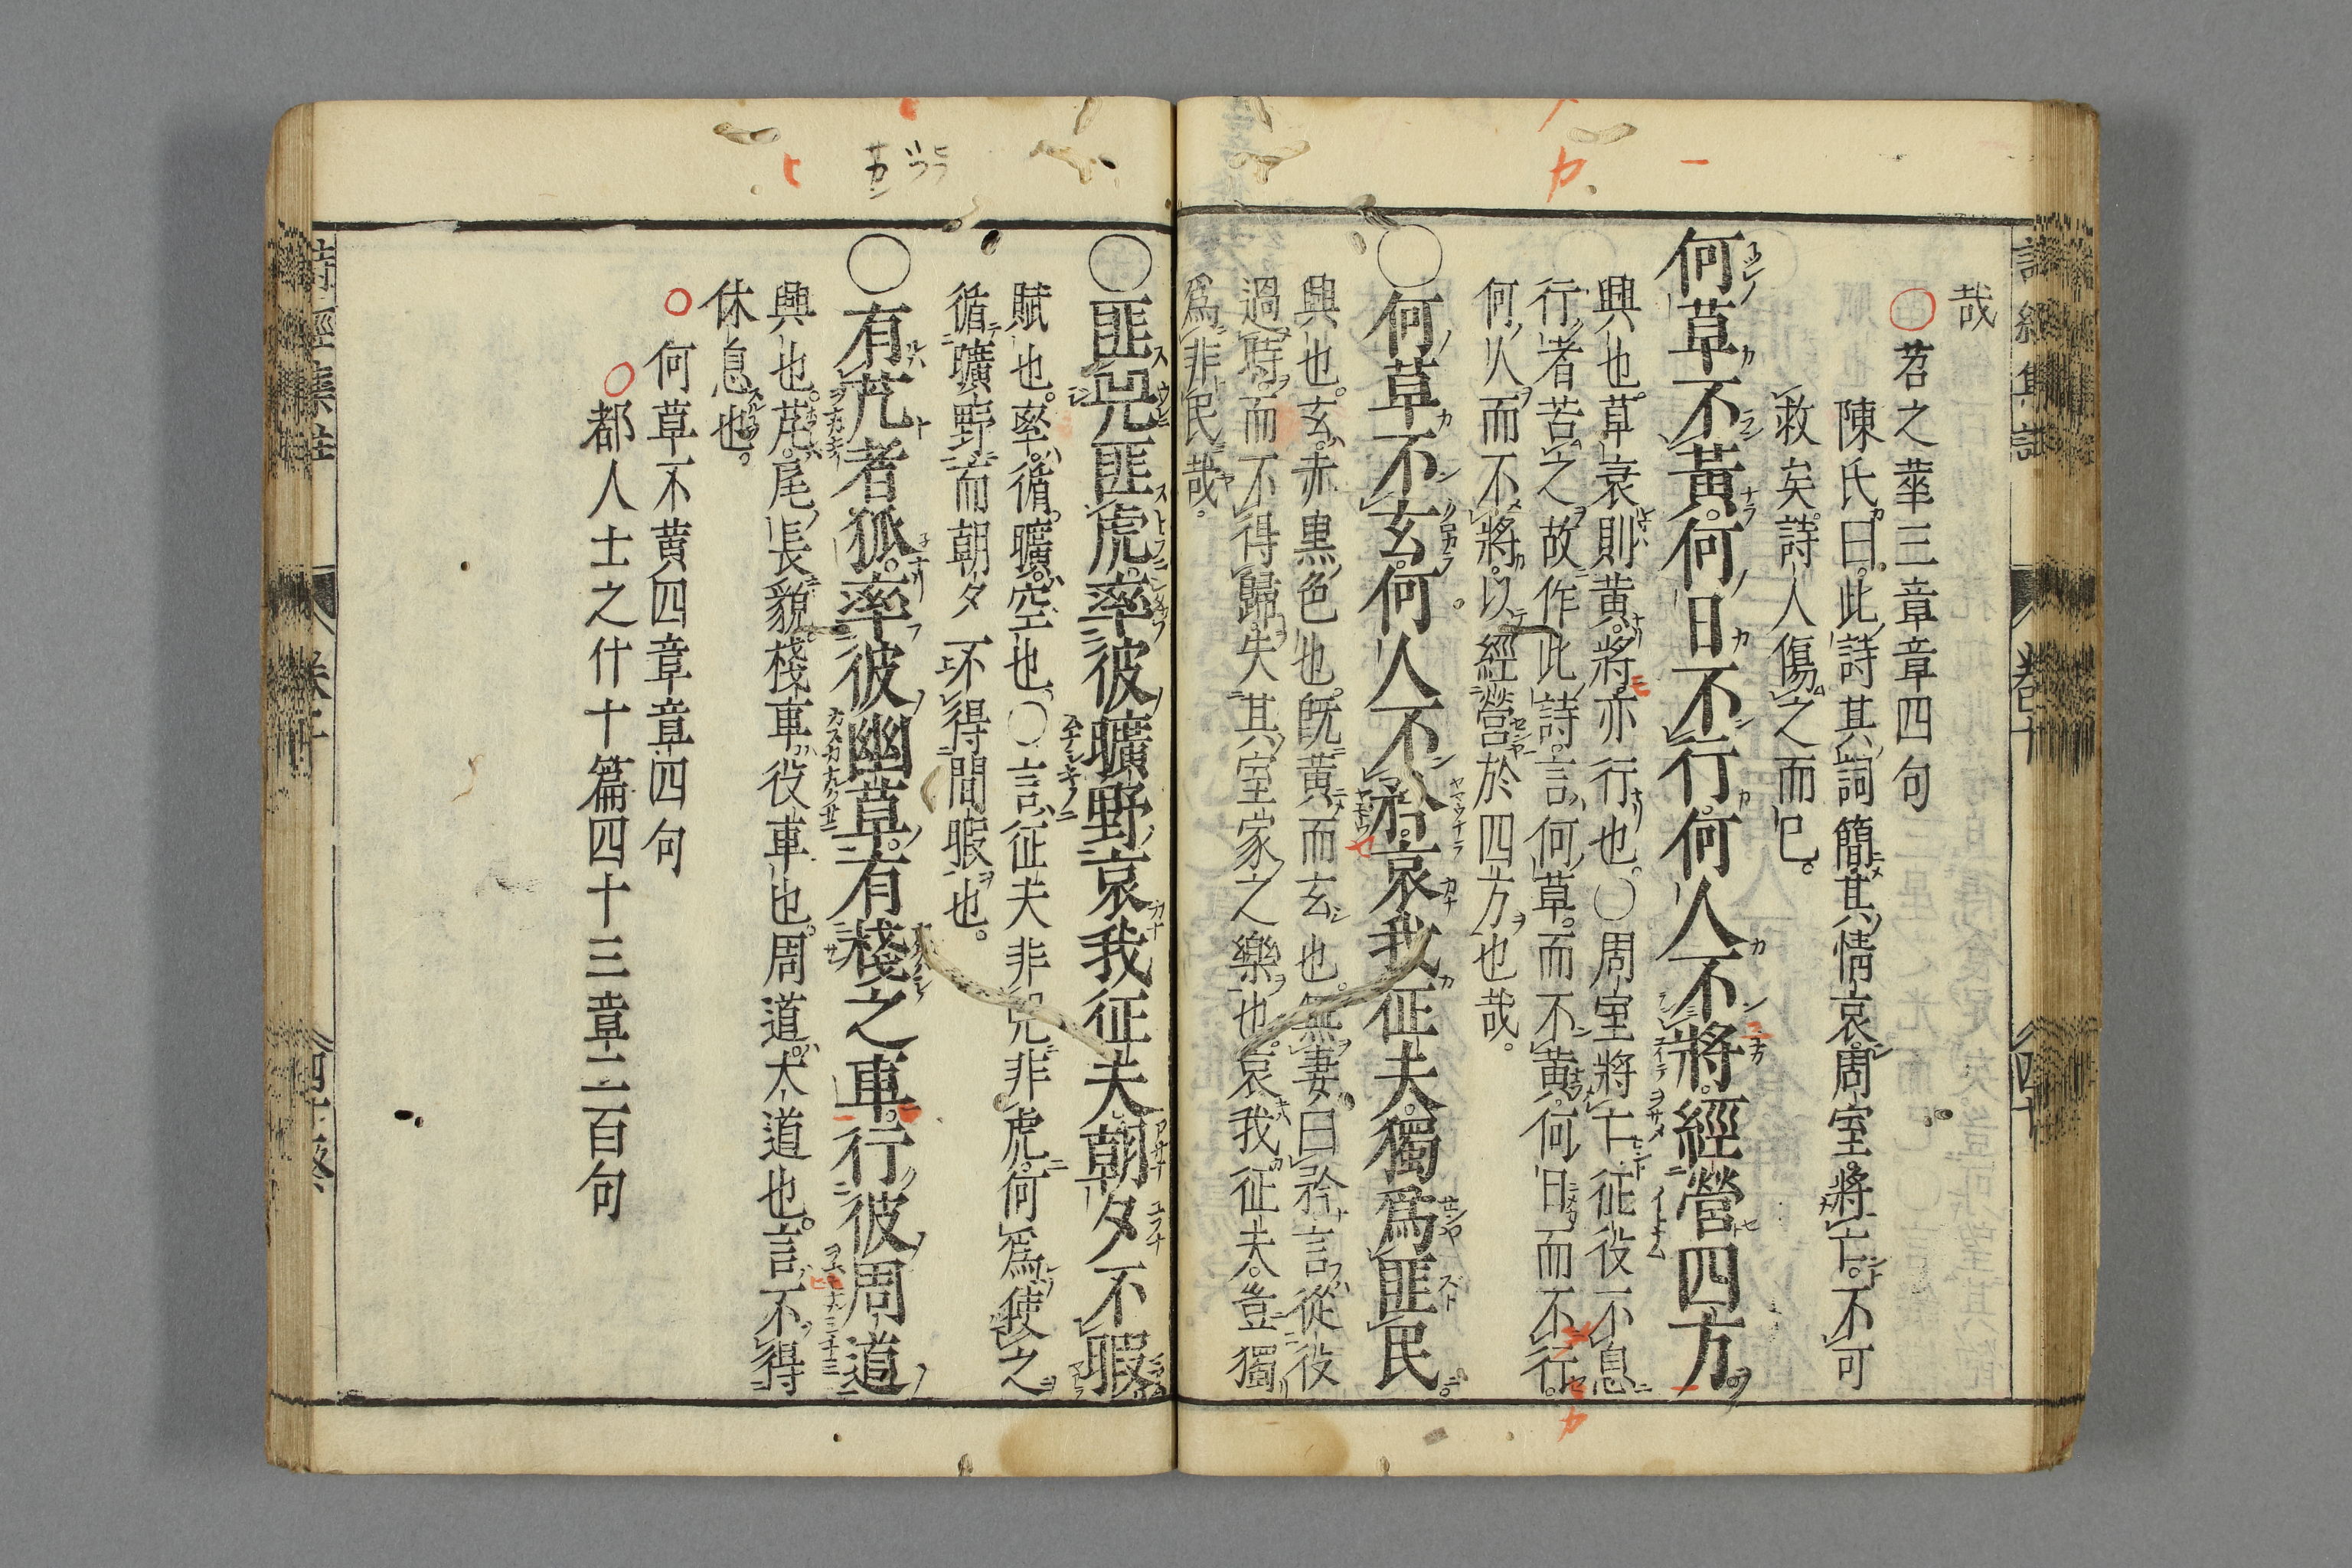 哉
○苕之華三章章四句
陳氏曰此詩其詞簡其情哀周室將亡不可
救矣詩人傷之而已
何草不黃何日不行何人不將經營四方
興也草衰則黃將亦行也○周室將亡征役不息
行者苦之故作此詩言何草而不黃何日而不行
何人而不將以經營於四方也哉
○何草不玄何人不矜哀我征夫獨爲匪民
興也玄赤黒色也旣黃而玄也無妻曰矜言從役
過時而不得歸失其室家之樂也哀我征夫豈獨
爲非民哉
○匪兕匪虎率彼曠野哀我征夫朝夕不暇
賦也率循曠空也○言征夫非兕非虎何爲使之
循曠野而朝夕不得間暇也
○有芃者狐率彼幽草有棧之車行彼周道
興也芃尾長貌棧車役車也周道大道也言不得
休息也
○何草不黄四章章四句
○都人士之什十篇四十三章二百句